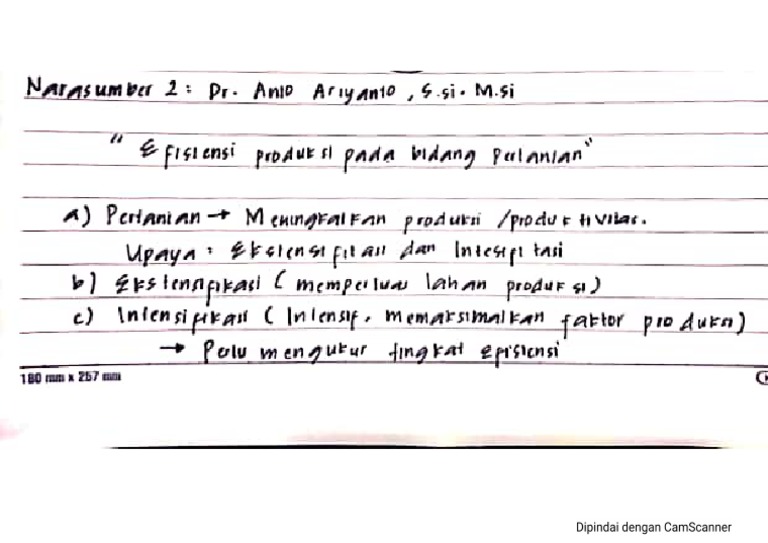 Narasumber 2 : Dr. Anto Ariyanto, S.si. M.Si
"Efisiensi produksi pada bidang Pertanian"
a) Pertanian → Meningkatkan produksi /produktivitas.
Upaya : Ekstensifikasi dan Intesifitasi
b) Ekstensifikasi ( memperluas lahan produksi)
c) Intensifikasi ( Intensif, memaksimalkan faktor produksi)
→ Perlu mengukur tingkat Efisiensi
180 mm x 257 mm
Dipindai dengan CamScanner